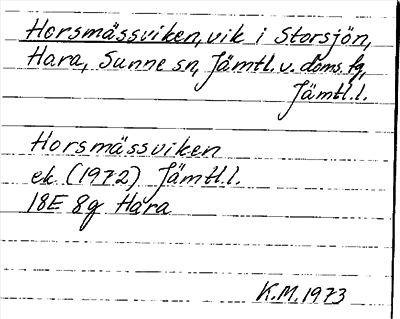 Horsmässviken, vik i Storsjön,
Hara, Sunne sn, Jämtl. v. doms. fg,
Jämtl.l.
Horsmässviken
ek (1972) Jämtl.l.
18E 8g Hara
K.M. 1973